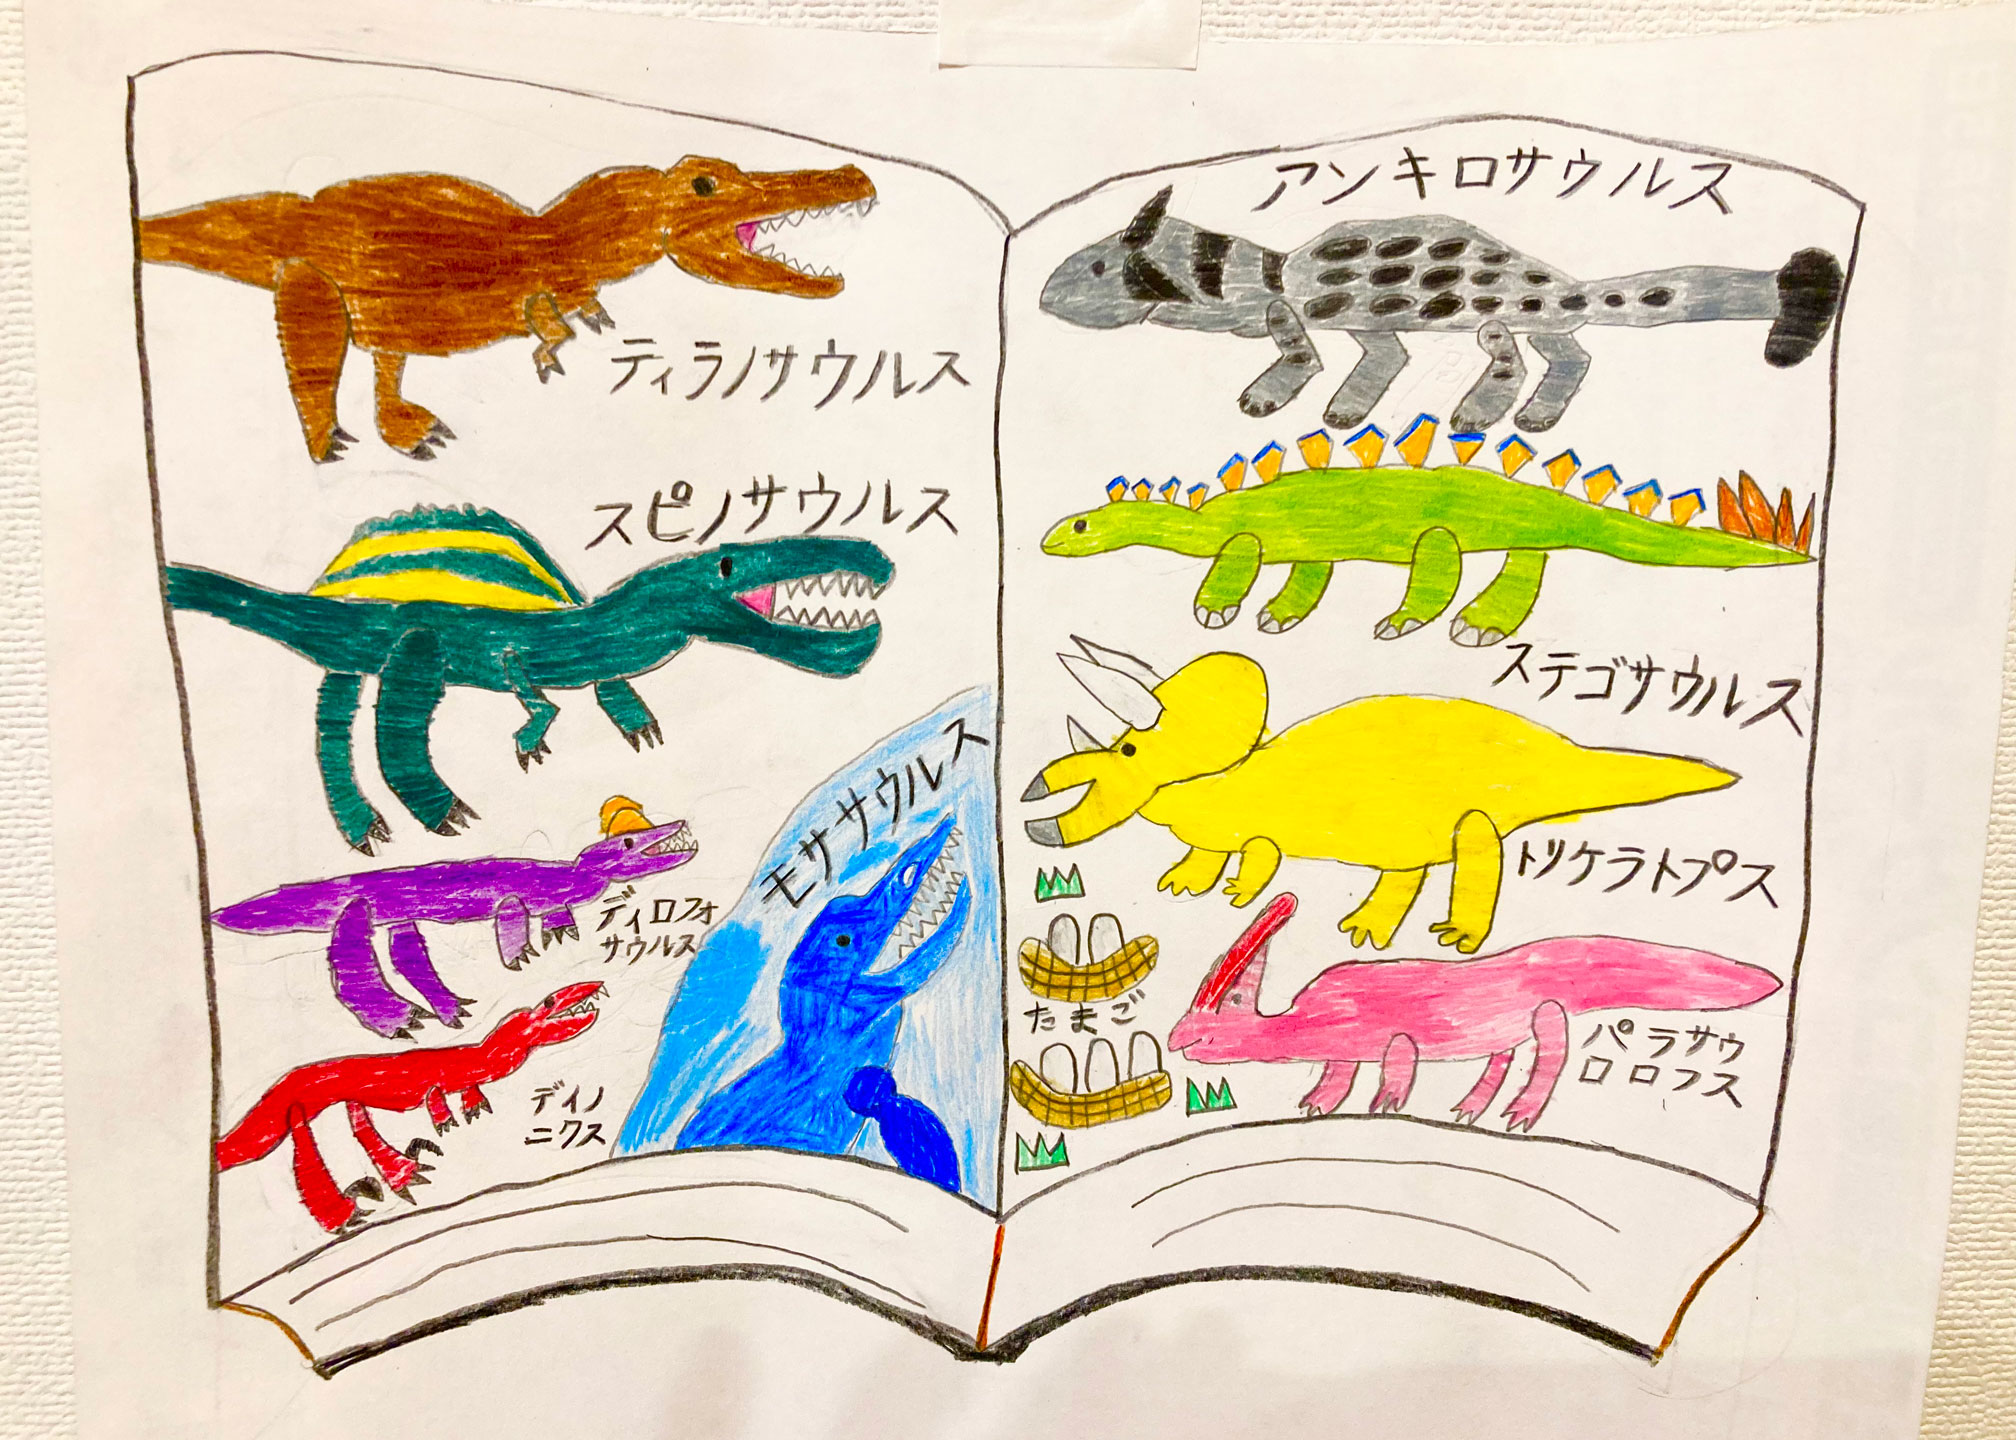 ティラノサウルス
スピノサウルス
ディロフォ
サウルス
ディノ
ニクス
モササウルス
アンキロサウルス
ステゴサウルス
トリケラトプス
たまご
パラサウ
ロロフス